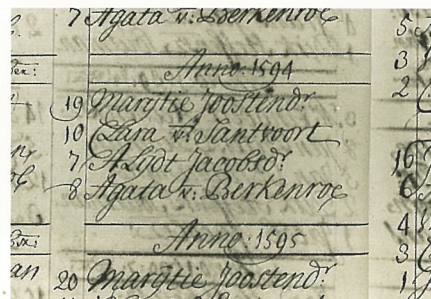 7 Agata v: Berkenroe
Anno: 1594
19 Marÿtie Joostendr
10 Clara v: Santvoort
7 Alÿdt Jacobsdr
8 Agata v: Berkenroe
Anno: 1595
20 Marÿtie Joostendr
5
3
2
16
6
4
3
1